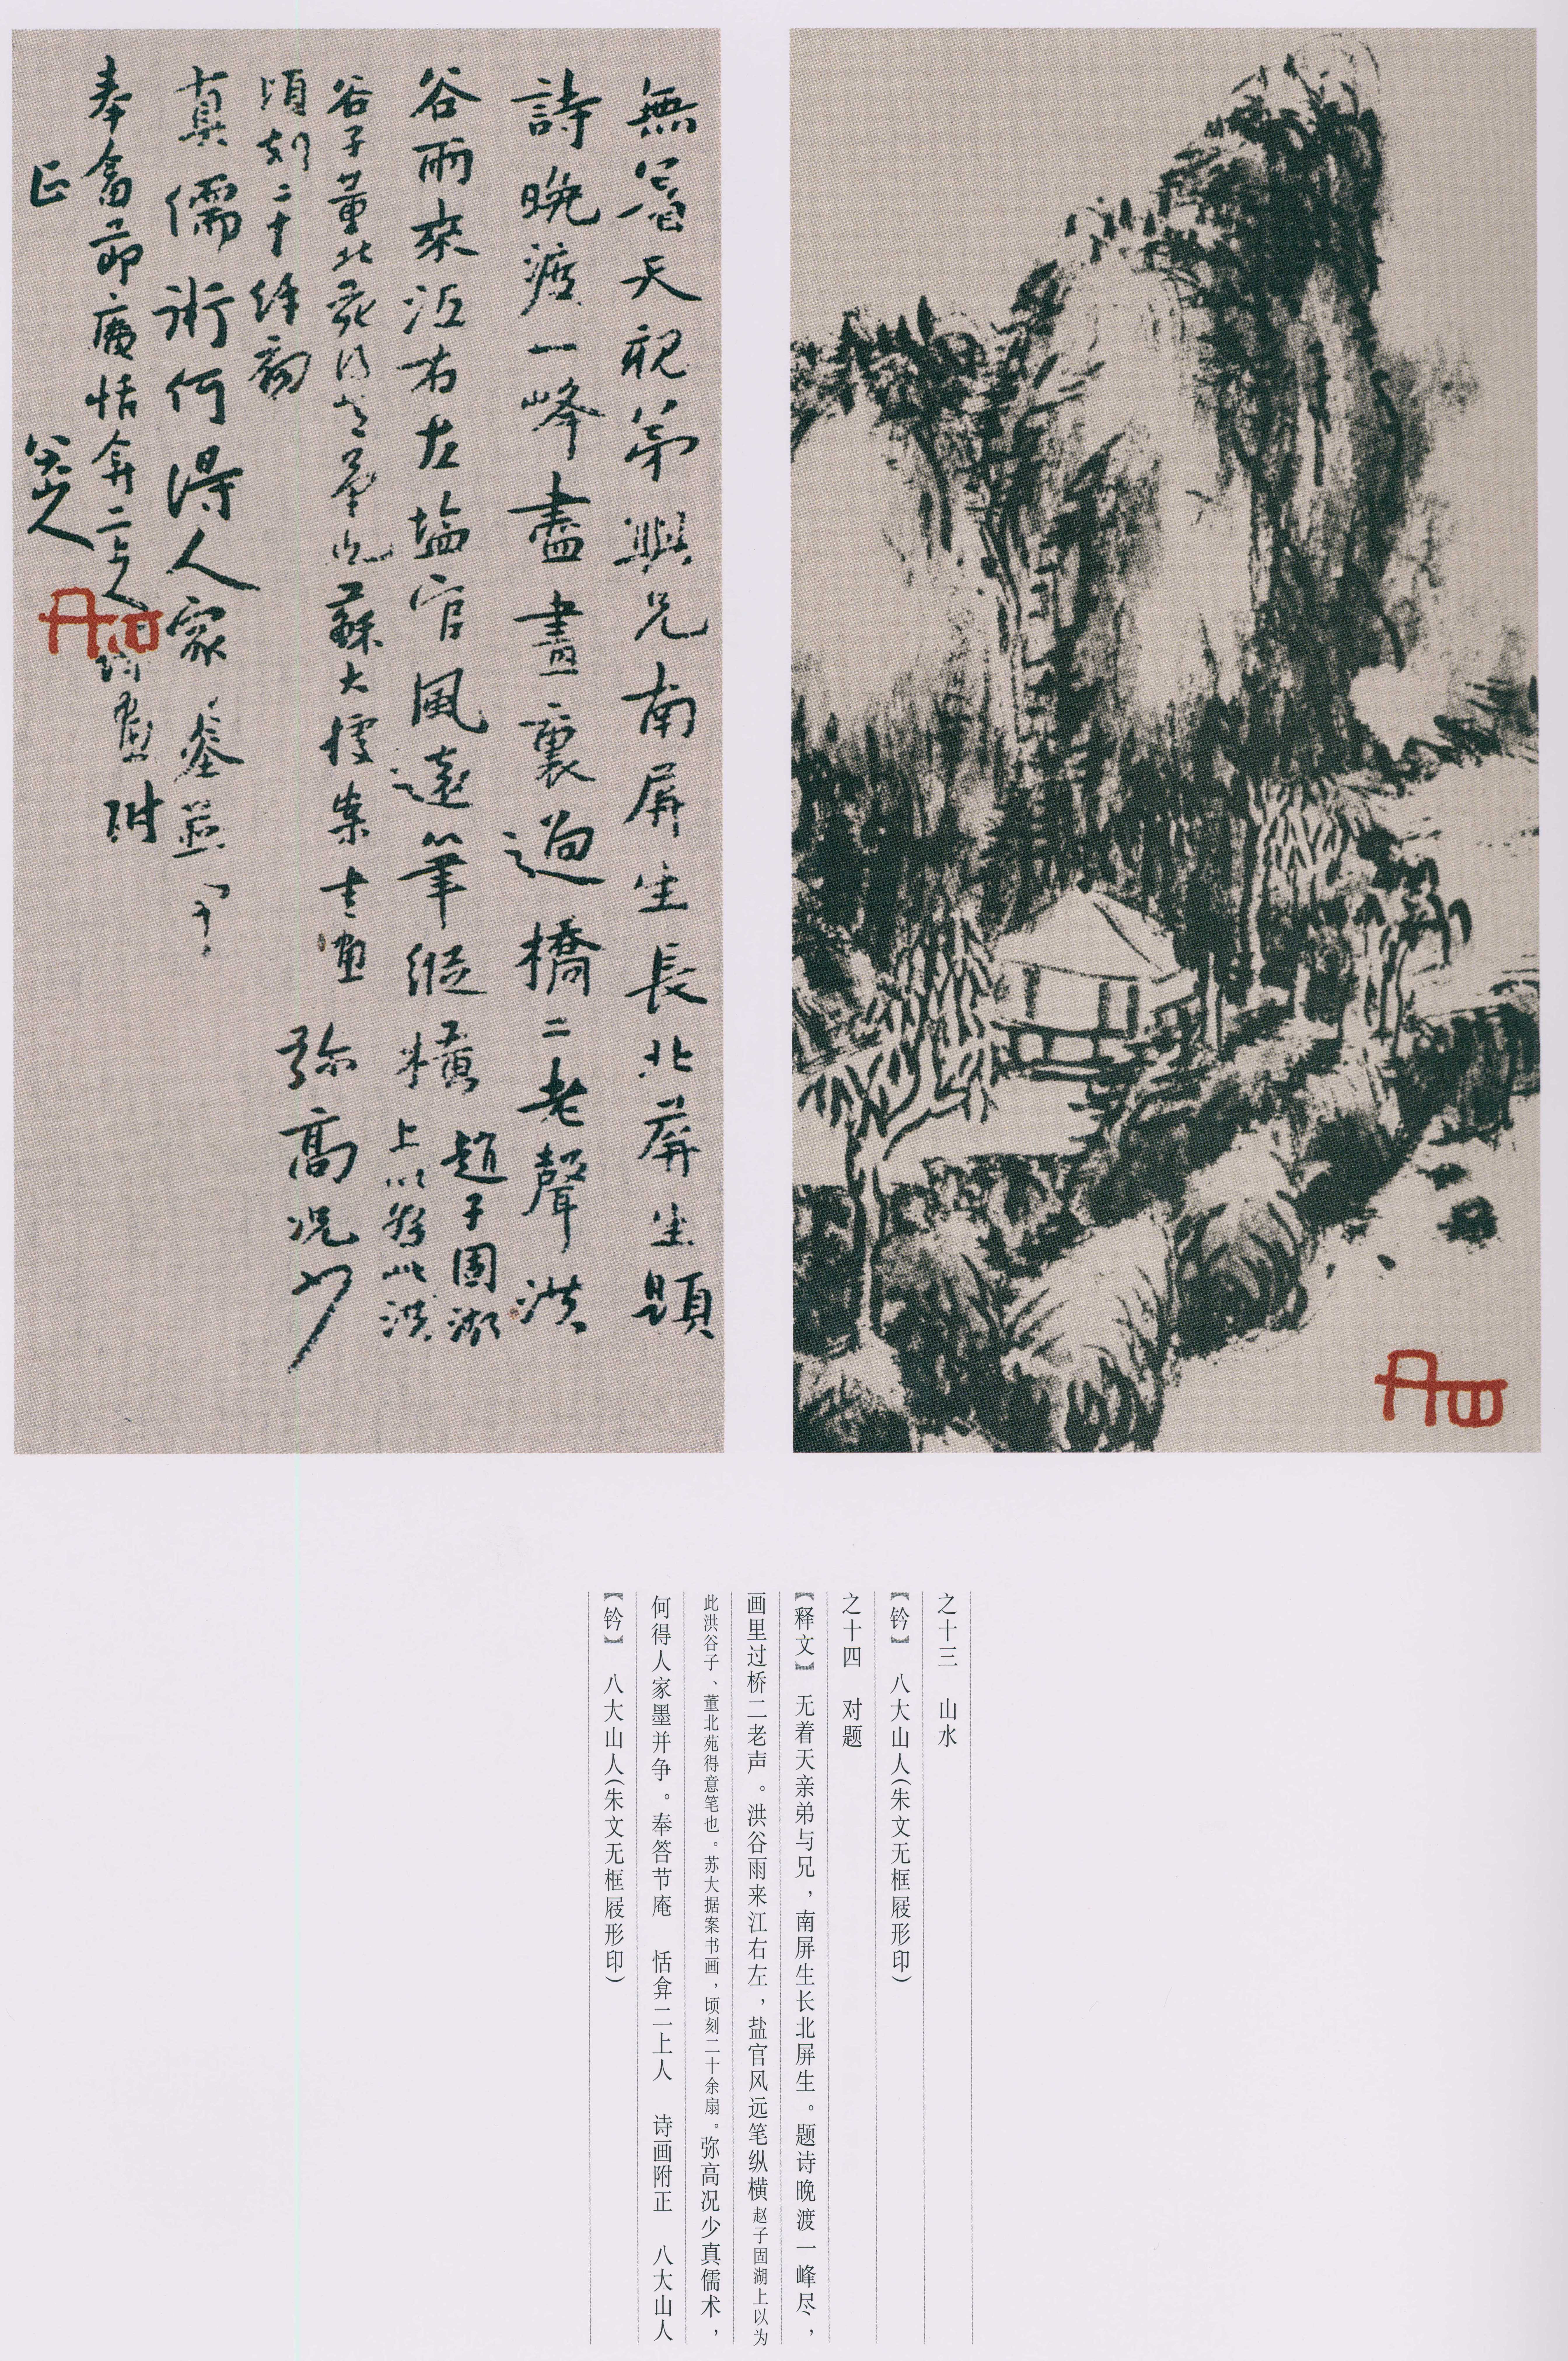 無着天親弟與兄南屏生長北屏生題
詩晚渡一峰盡畫裏過橋二老聲洪
谷雨來江右左塩官風遠筆縱橫趙子固湖
上以為此洪
谷子董北苑得意筆也蘇大據案書畫
頃刻二十餘扇
弥高况少
真儒術何得人家墨並爭
奉答節庵恬弇二上人詩畫附
正
八大山人
之十三　山水
【钤】　八大山人（朱文无框屐形印）
之十四　对题
【释文】　无着天亲弟与兄，南屏生长北屏生。题诗晚渡一峰尽，
画里过桥二老声。洪谷雨来江右左，盐官风远笔纵横赵子固湖上以为
此洪谷子、董北苑得意笔也。苏大据案书画，顷刻二十余扇。弥高况少真儒术，
何得人家墨并争。奉答节庵　恬弇二上人　诗画附正　八大山人
【钤】　八大山人（朱文无框屐形印）